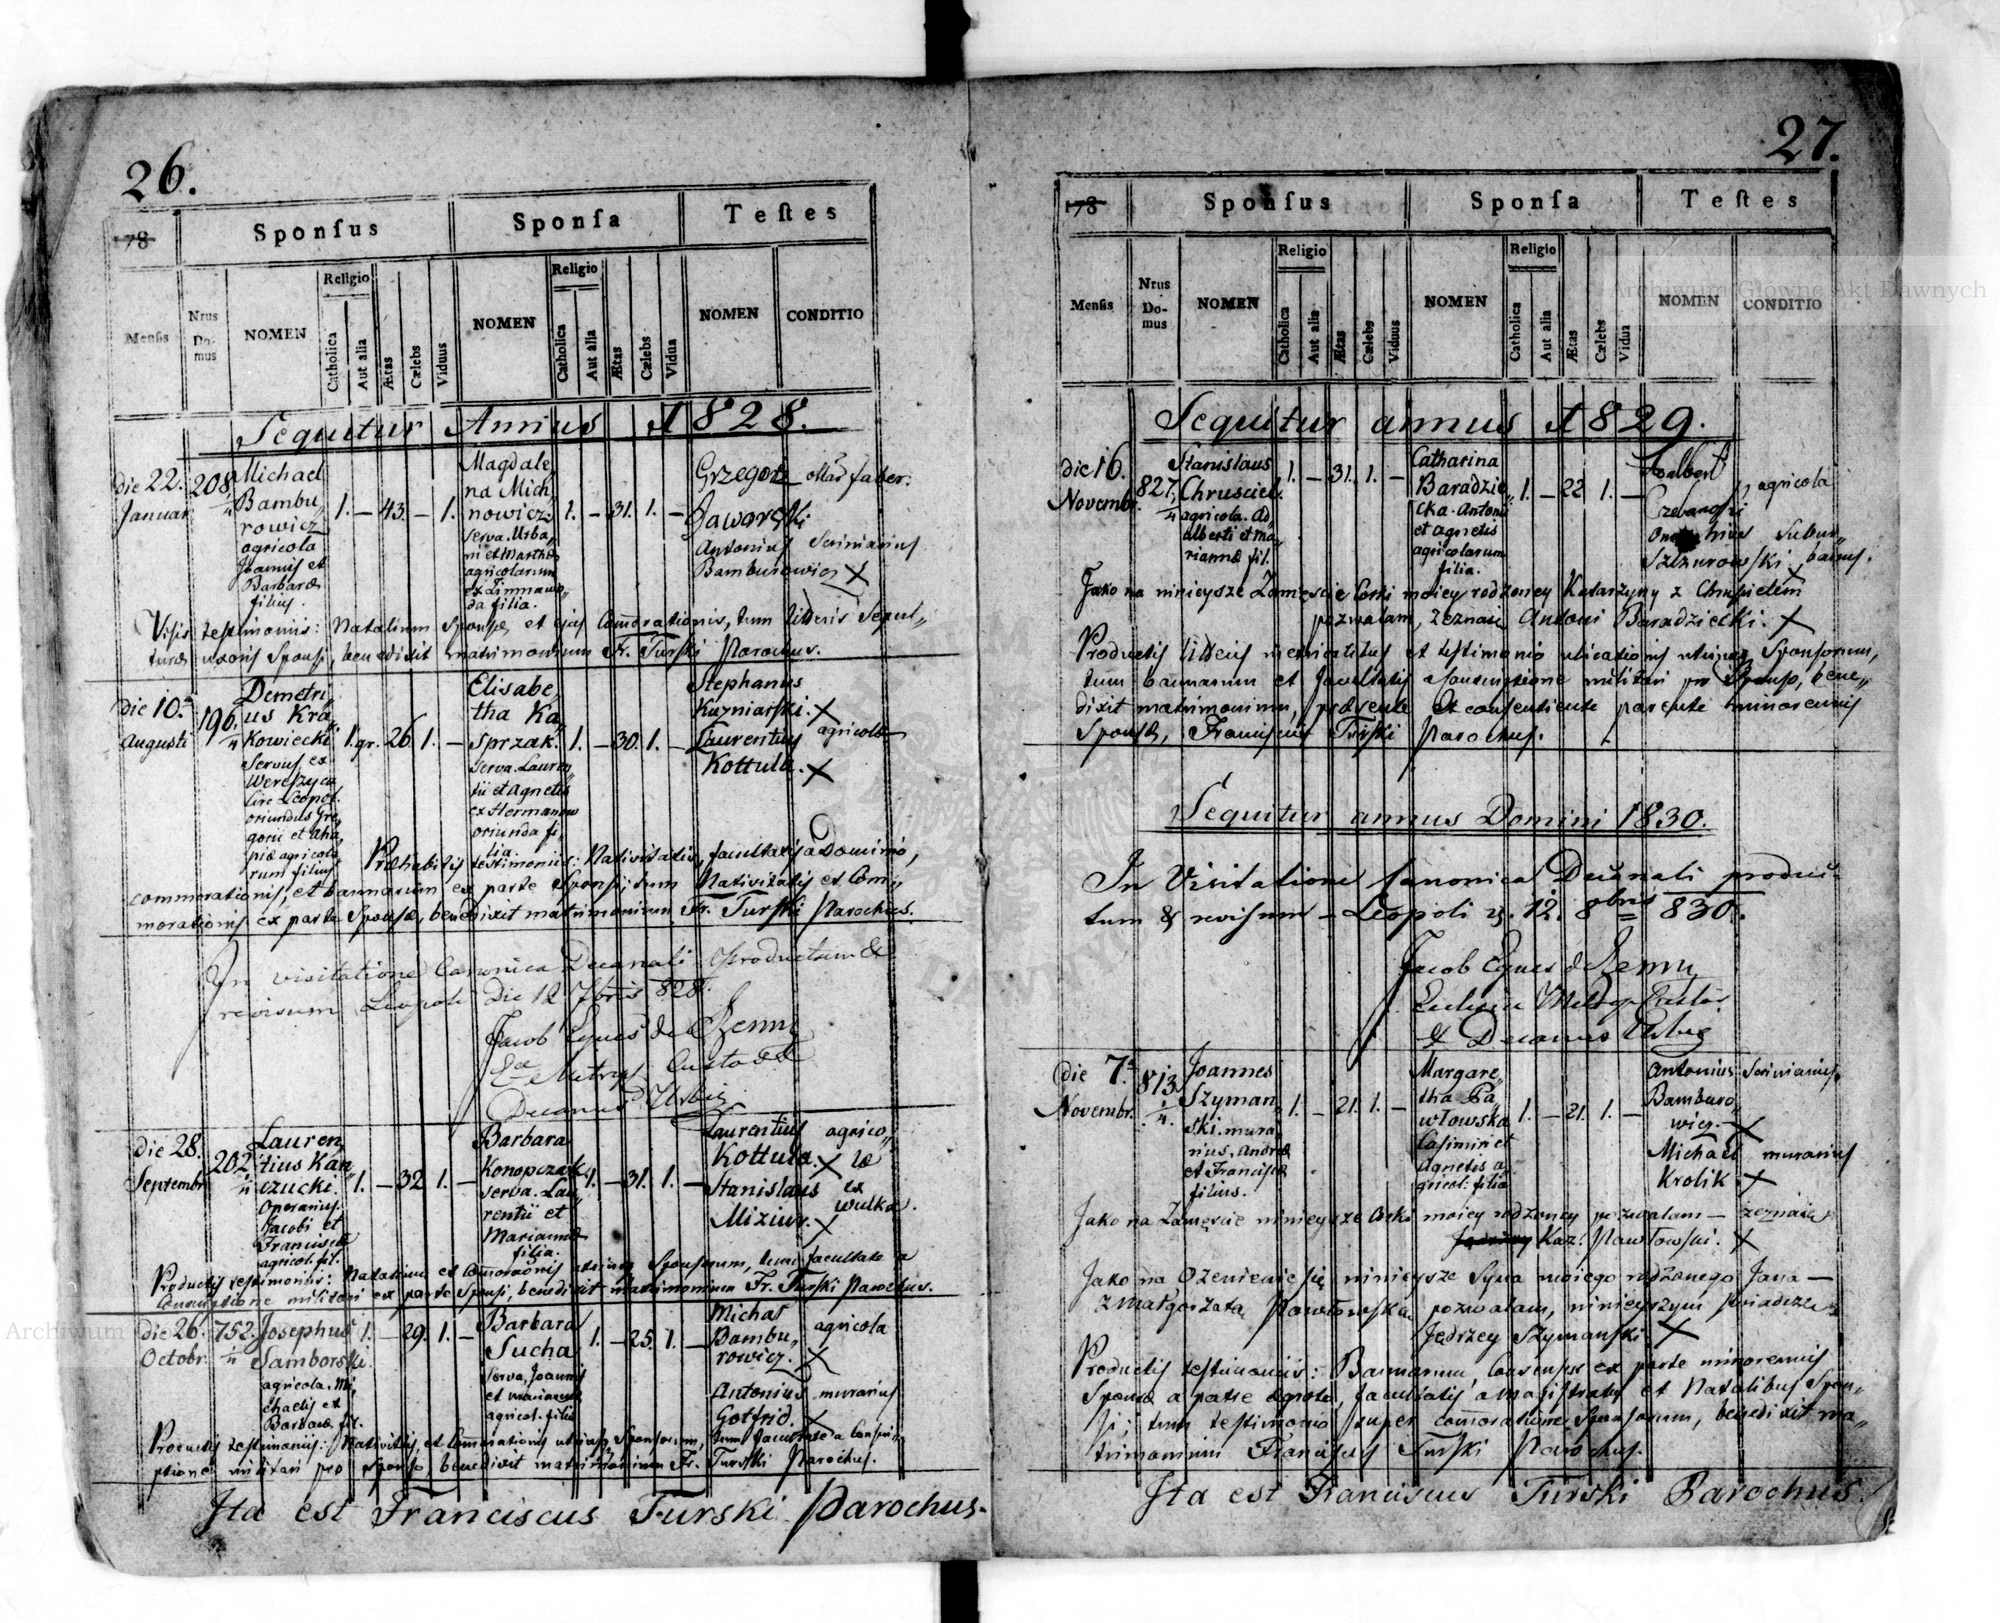 26.
78
Sponſus
Sponſa
Teſtes
Menſis
Nrus Domus
NOMEN
Religio
Catholica
Aut alia
Ætas
Cælebs
Viduus
NOMEN
Religio
Catholica
Aut alia
Ætas
Cælebs
Vidua
NOMEN
CONDITIO
Sequitur Annus 1828.
die 22. Januar
208/4
Michael
Bambu„
rowicz
agricola
Joannis et
Barbaræ
filius.
1. – 43. – 1.
Magdale„
na Mich„
nowicz.
serva. Urba„
ni et Marthæ
agricolarum
ex Zimnawo„
da filia.
1. – 31. 1. –
Grzegorz
Jaworski
faber.
Antonius Scriniarius
Bamburowicz X
Visis testimoniis: Natalium Sponsæ, et ejus Comorationis, tum litteris Sepul„
turæ uxoris Sponsi, benedixit matrimonium Fr. Turski Parochus.
die 10. Augusti
196/4
Demetri„
us Kra„
kowiecki
Servus ex
Wereszyca
Circ. Leopol.
oriundus Gre„
gorii et Aha„
piæ agricola„
rum filius
1. gr. 26. 1. –
Elisabe„
tha Ka„
sprzak.
serva. Lauren„
tii et Agnetis
ex Hermanow
oriunda fi„
lia.
1. – 30. 1. –
Stephanus
Kuzniarski. X
Laurentius
Kottula. X
agricolæ
Præhabitis testimoniis: Nativitatis, facultatis a Dominio,
commorationis, et bannorum ex parte Sponsi; tum Nativitatis et Com„
morationis ex parte Sponsæ, benedixit matrimonium Fr. Turski Parochus.
In visitatione Canonica Decanali Productum &
revisum Leopoli Die 12 7bris 828.
Jacob Eques de
Metrop. Custos et
Decanus Urbis
die 28. Septembr
202/4
Lauren„
tius Kan„
czucki.
Operarius.
Jacobi et
Franciscæ
agricol. fil.
1. – 32. 1. –
Barbara
Konopczak
serva. Lau„
rentii et
Mariannæ
filia.
1. – 31. 1. –
Laurentius
Kottula. X
Stanislaus
Miziur. X
agrico„
læ
ex
Wulka.
Productis testimoniis: Natalium et Comorationis utriusq Sponsorum, tum facultate a
Conscriptione militari ex parte Sponsi, benedixit matrimonium Fr. Turski Parochus.
die 26. Octobr.
752/4
Josephus
Samborski.
agricola. Mi„
chaelis et
Barbaræ fil.
1. – 29. 1. –
Barbara
Sucha
serva, Joannis
et Mariannæ
agricol. filia
1. – 25. 1. –
Michał
Bambu„
rowicz. X
agricola
Antonius murarius
Gotfrid. X
Productis testimoniis: Nativitatis, et Comorationis utriusq Sponsorum, tum facultate a Conscri„
ptione militari pro Sponso benedixit matrimonium Fr. Turski Parochus.
Ita est Franciscus Turski Parochus.
27.
78
Sponſus
Sponſa
Teſtes
Menſis
Nrus Do-mus
NOMEN
Religio
Catholica
Aut alia
Ætas
Cælebs
Viduus
NOMEN
Religio
Catholica
Aut alia
Ætas
Cælebs
Vidua
NOMEN
CONDITIO
Sequitur annus 1829.
die 16. Novembr.
827/4
Stanislaus
Chrusciel.
agricola. Ad„
alberti et Ma„
riannæ fil.
1. – 31. 1. –
Catharina
Baradzie„
cka. Antonii
et Agnetis
agricolarum
filia.
1. – 22 1. –
Adalbert
agricola
Szczurowski
Subur„
banus.
Jako na ninieysze Zamęscie Corki moiey rodzoney Katarzyny z Chruścielem
pozwalam, zeznaie Antoni Baradziecki. X
Productis litteris et testimonio Sponsorum,
tum bannorum et facultatis a Conscriptione militari pro Sponso, bene„
dixit matrimonium, præsente et consentiente parente minorennis
Sponsæ, Franciscus Turski Parochus.
Sequitur annus Domini 1830.
In Visitatione Canonica Decanali produc„
tum & revisum – Leopoli d. 12. 8bris 830.
Jacob Eques de
Decanus Urbis
die 7. Novembr.
813/4.
Joannes
Szyman„
ski. mura„
rius. Andreæ
et Franciscæ
filius.
1. – 21. 1. –
Margare„
tha Pa„
włowska
Casimiri et
Agnetis a„
gricol: filia
1. – 21. 1. –
Antonius Scriniarius.
Bamburo„
wicz. X
Michael murarius
Krolik. X
Jako na Zamęscie ninieysze Corki moiey rodzoney pozwalam – zeznaie
Kaz. Pawłowski. X
Jako na Ozenienie się ninieysze Syna moiego rodzonego Jana –
z Małgorzatą Pawłowską pozwalam, ninieyszym swiadcze
Jędrzey Szymanski X
Productis testimoniis: Bannorum, Consensus ex parte minorennis
Sponsæ a patre ægroto, facultatis a Magistratu et Natalibus Spon„
si; tum testimonio super comoratione Sponsorum, benedixit ma„
trimonium Franciscus Turski Parochus.
Ita est Franciscus Turski Parochus.
Archiwum Główne Akt Dawnych